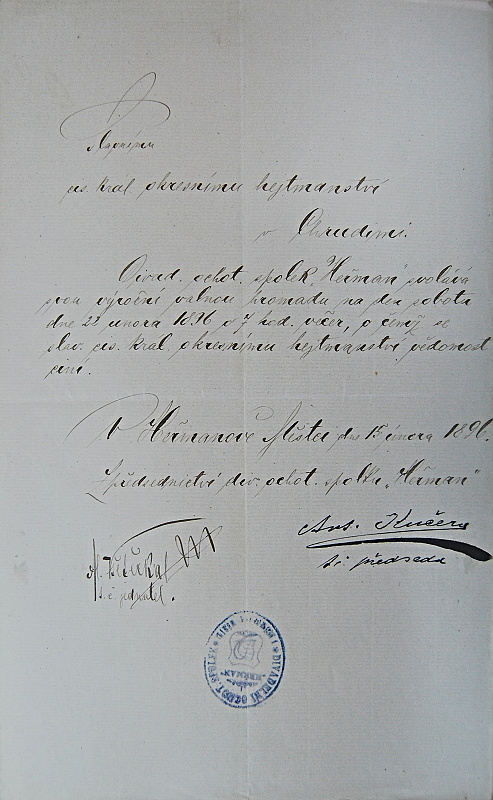 Slavnému
cís. král. okresnímu hejtmanství
v Chrudimi.
Divad. ochot. spolek „Heřman" svolává
svou výroční valnou hromadu na den sobotu
dne 22 února 1896 o 7 hod. večer, o čemž se
slav. cís. král. okresnímu hejtmanství vědomost
činí.
V Heřmanově Městci dne 15 února 1896.
Z předsednictví div. ochot. spolku „Heřman"
Ant. Kučera
t. č. předseda
t. č. jednatel.
DIVADELNÍ OCHOT. SPOLEK
"HEŘMAN"